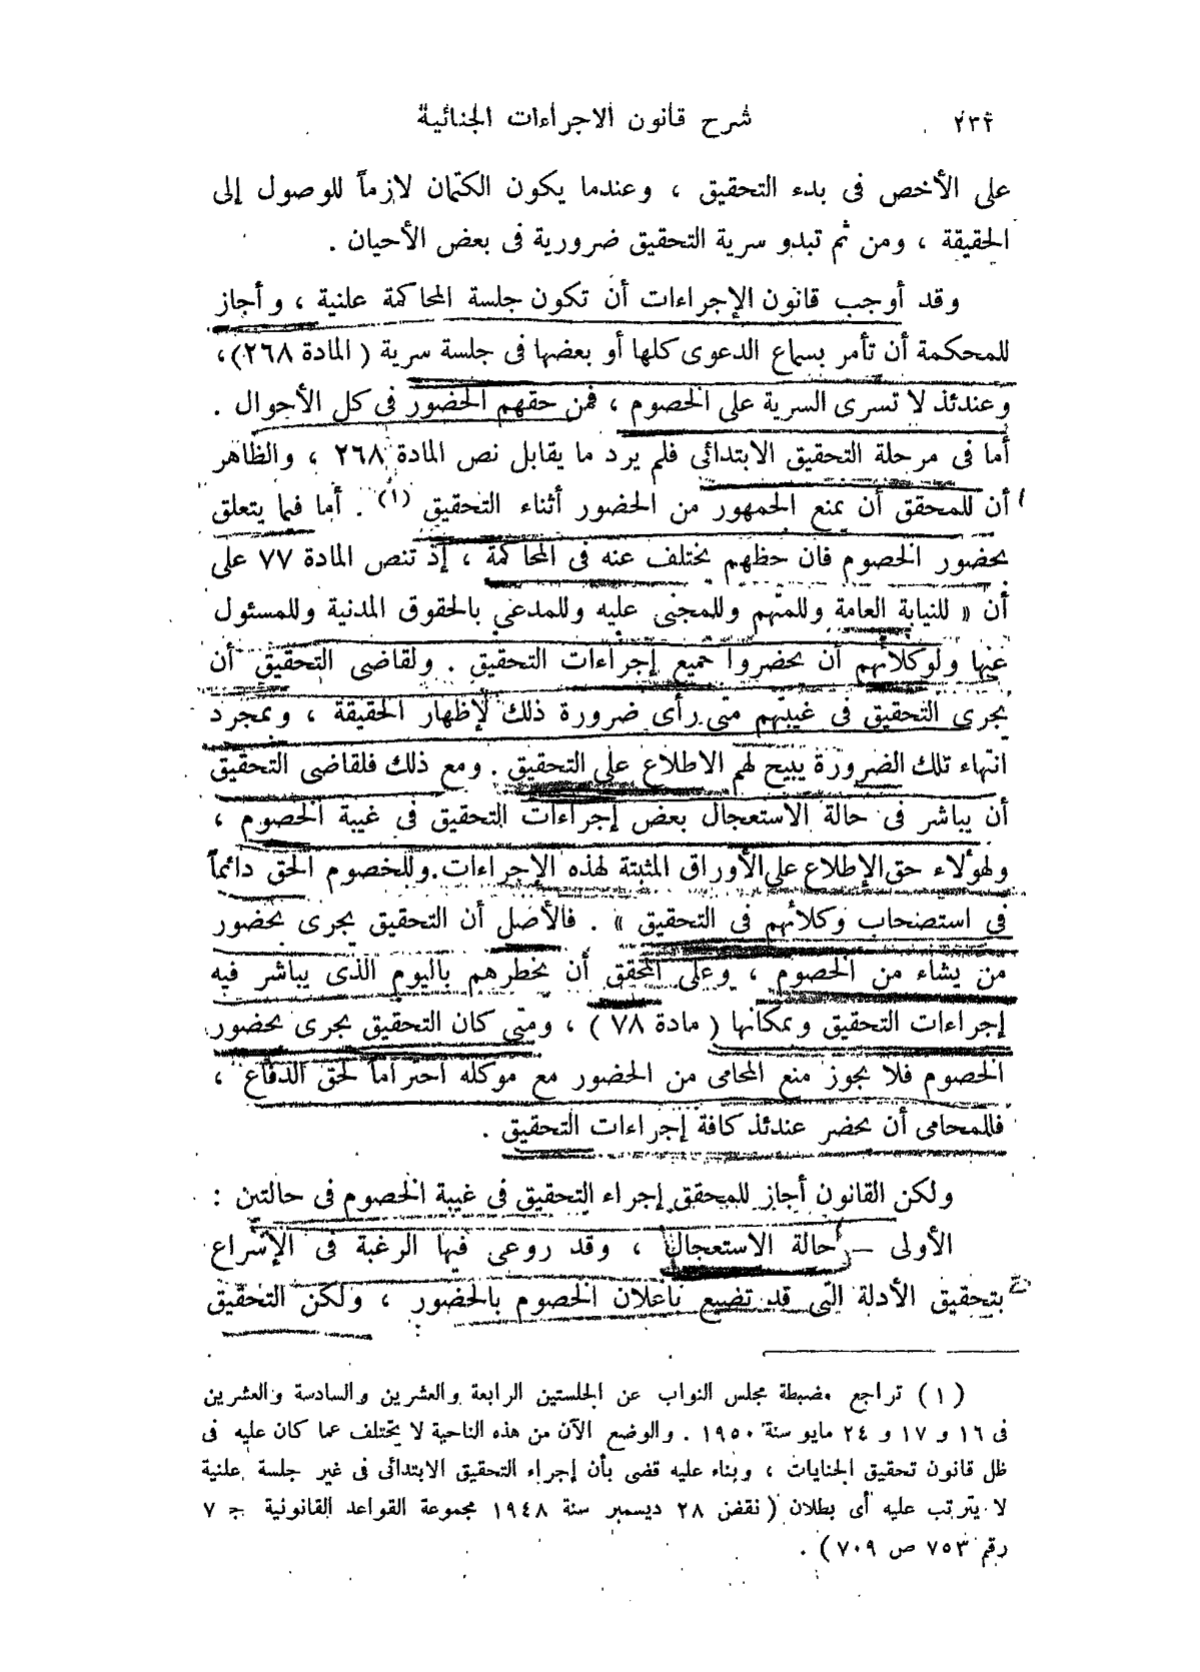 ٢٣٢ شرح قانون الاجراءات الجنائية
على الأخص فى بدء التحقيق ، وعندما يكون الكتمان لازماً للوصول إلى
الحقيقة ، ومن ثم تبدو سرية التحقيق ضرورية فى بعض الأحيان .
وقد أوجب قانون الإجراءات أن تكون جلسة المحاكمة علنية ، وأجاز
للمحكمة أن تأمر بسماع الدعوى كلها أو بعضها فى جلسة سرية ( المادة ٢٦٨) ،
وعندئذ لا تسرى السرية على الخصوم ، فمن حقهم الحضور فى كل الأحوال .
أما فى مرحلة التحقيق الابتدائى فلم يرد ما يقابل نص المادة ٢٦٨ ، والظاهر
أن للمحقق أن يمنع الجمهور من الحضور أثناء التحقيق (١) . أما فيما يتعلق
بحضور الخصوم فان حظهم يختلف عنه فى المحاكمة ، إذ تنص المادة ٧٧ على
أن « للنيابة العامة وللمتهم وللمجنى عليه وللمدعى بالحقوق المدنية وللمسئول
عنها ولوكلائهم أن يحضروا جميع إجراءات التحقيق . ولقاضى التحقيق أن
يجرى التحقيق فى غيبتهم متى رأى ضرورة ذلك لإظهار الحقيقة ، وبمجرد
انتهاء تلك الضرورة يبيح لهم الاطلاع على التحقيق . ومع ذلك فلقاضى التحقيق
أن يباشر فى حالة الاستعجال بعض إجراءات التحقيق فى غيبة الخصوم ،
ولهؤلاء حق الإطلاع على الأوراق المثبتة لهذه الإجراءات . وللخصوم الحق دائماً
فى استصحاب وكلائهم فى التحقيق » . فالأصل أن التحقيق يجرى بحضور
من يشاء من الخصوم ، وعلى المحقق أن يخطرهم باليوم الذى يباشر فيه
إجراءات التحقيق وبمكانها ( مادة ٧٨ ) ، ومتى كان التحقيق يجرى بحضور
الخصوم فلا يجوز منع المحامى من الحضور مع موكله احتراماً لحق الدفاع ،
فللمحامى أن يحضر عندئذ كافة إجراءات التحقيق .
ولكن القانون أجاز للمحقق إجراء التحقيق فى غيبة الخصوم فى حالتين :
الأولى – حالة الاستعجال ، وقد روعى فيها الرغبة فى الإسراع
بتحقيق الأدلة التى قد تضيع باعلان الخصوم بالحضور ، ولكن التحقيق
(١) تراجع مضبطة مجلس النواب عن الجلستين الرابعة والعشرين والسادسة والعشرين
فى ١٦ و ١٧ و ٢٤ مايو سنة ١٩٥٠ . والوضع الآن من هذه الناحية لا يختلف عما كان عليه فى
ظل قانون تحقيق الجنايات ، وبناء عليه قضى بأن إجراء التحقيق الابتدائى فى غير جلسة علنية
لا يترتب عليه أى بطلان ( نقض ٢٨ ديسمبر سنة ١٩٤٨ مجموعة القواعد القانونية جـ ٧
رقم ٧٥٣ ص ٧٠٩) .